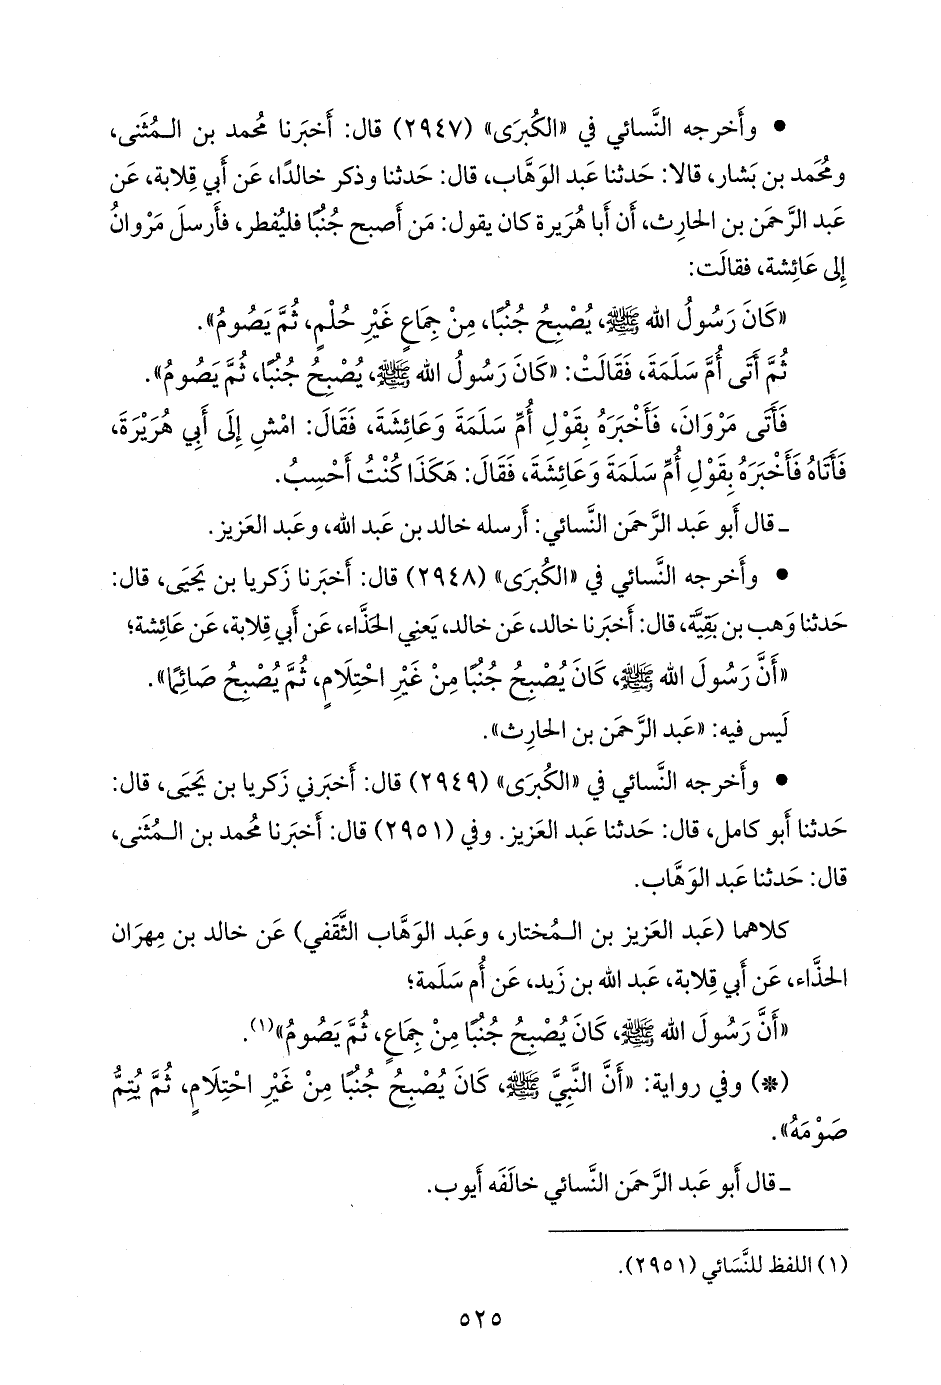 • وأَخرجه النَّسائي في «الكُبرَى» (٢٩٤٧) قال: أَخبَرنا مُحمد بن الـمُثنى،
ومُحمَد بن بَشار، قالا: حَدثنا عَبد الوَهَّاب، قال: حَدثنا وذكر خالدًا، عَن أَبي قِلابة، عَن
عَبد الرَّحمَن بن الحارِث، أَن أَبا هُرَيرة كان يقول: مَن أَصبح جُنُبًا فليُفطر، فأَرسلَ مَرْوانُ
إِلى عَائِشة، فقالَت:
«كَانَ رَسُولُ الله ﷺ، يُصْبِحُ جُنُبًا، مِنْ جِمَاعٍ غَيْرِ حُلْمٍ، ثُمَّ يَصُومُ».
ثُمَّ أَتَى أُمَّ سَلَمَةَ، فَقَالَتْ: «كَانَ رَسُولُ الله ﷺ، يُصْبِحُ جُنُبًا، ثُمَّ يَصُومُ».
فَأَتَى مَرْوَانَ، فَأَخْبَرَهُ بِقَوْلِ أُمِّ سَلَمَةَ وَعَائِشَةَ، فَقَالَ: امْشِ إِلَى أَبِي هُرَيْرَةَ،
فَأَتَاهُ فَأَخْبَرَهُ بِقَوْلِ أُمِّ سَلَمَةَ وَعَائِشَةَ، فَقَالَ: هَكَذَا كُنْتُ أَحْسِبُ.
ـ قال أَبو عَبد الرَّحمَن النَّسائي: أَرسله خالد بن عَبد الله، وعَبد العَزيز.
• وأَخرجه النَّسائي في «الكُبرَى» (٢٩٤٨) قال: أَخبَرنا زَكريا بن يَحيَى، قال:
حَدثنا وَهب بن بَقِيَّة، قال: أَخبَرنا خالد، عَن خالد، يَعني الحَذَّاء، عَن أَبي قِلابة، عَن عَائِشة؛
«أَنَّ رَسُولَ الله ﷺ، كَانَ يُصْبِحُ جُنُبًا مِنْ غَيْرِ احْتِلَامٍ، ثُمَّ يُصْبِحُ صَائِمًا».
لَيس فيه: «عَبد الرَّحمَن بن الحارِث».
• وأَخرجه النَّسائي في «الكُبرَى» (٢٩٤٩) قال: أَخبَرني زَكريا بن يَحيَى، قال:
حَدثنا أَبو كامل، قال: حَدثنا عَبد العَزيز. وفي (٢٩٥١) قال: أَخبَرنا مُحمد بن الـمُثنى،
قال: حَدثنا عَبد الوَهَّاب.
كلاهما (عَبد العَزيز بن الـمُختار، وعَبد الوَهَّاب الثَّقَفي) عَن خالد بن مِهرَان
الحَذَّاء، عَن أَبي قِلابة، عَبد الله بن زَيد، عَن أُم سَلَمة؛
«أَنَّ رَسُولَ الله ﷺ، كَانَ يُصْبِحُ جُنُبًا مِنْ جِمَاعٍ، ثُمَّ يَصُومُ»(١).
(*) وفي رواية: «أَنَّ النَّبِيَّ ﷺ، كَانَ يُصْبِحُ جُنُبًا مِنْ غَيْرِ احْتِلَامٍ، ثُمَّ يُتِمُّ
صَوْمَهُ».
ـ قال أَبو عَبد الرَّحمَن النَّسائي خالَفَه أَيوب.
(١) اللفظ للنَّسَائي (٢٩٥١).
٥٢٥